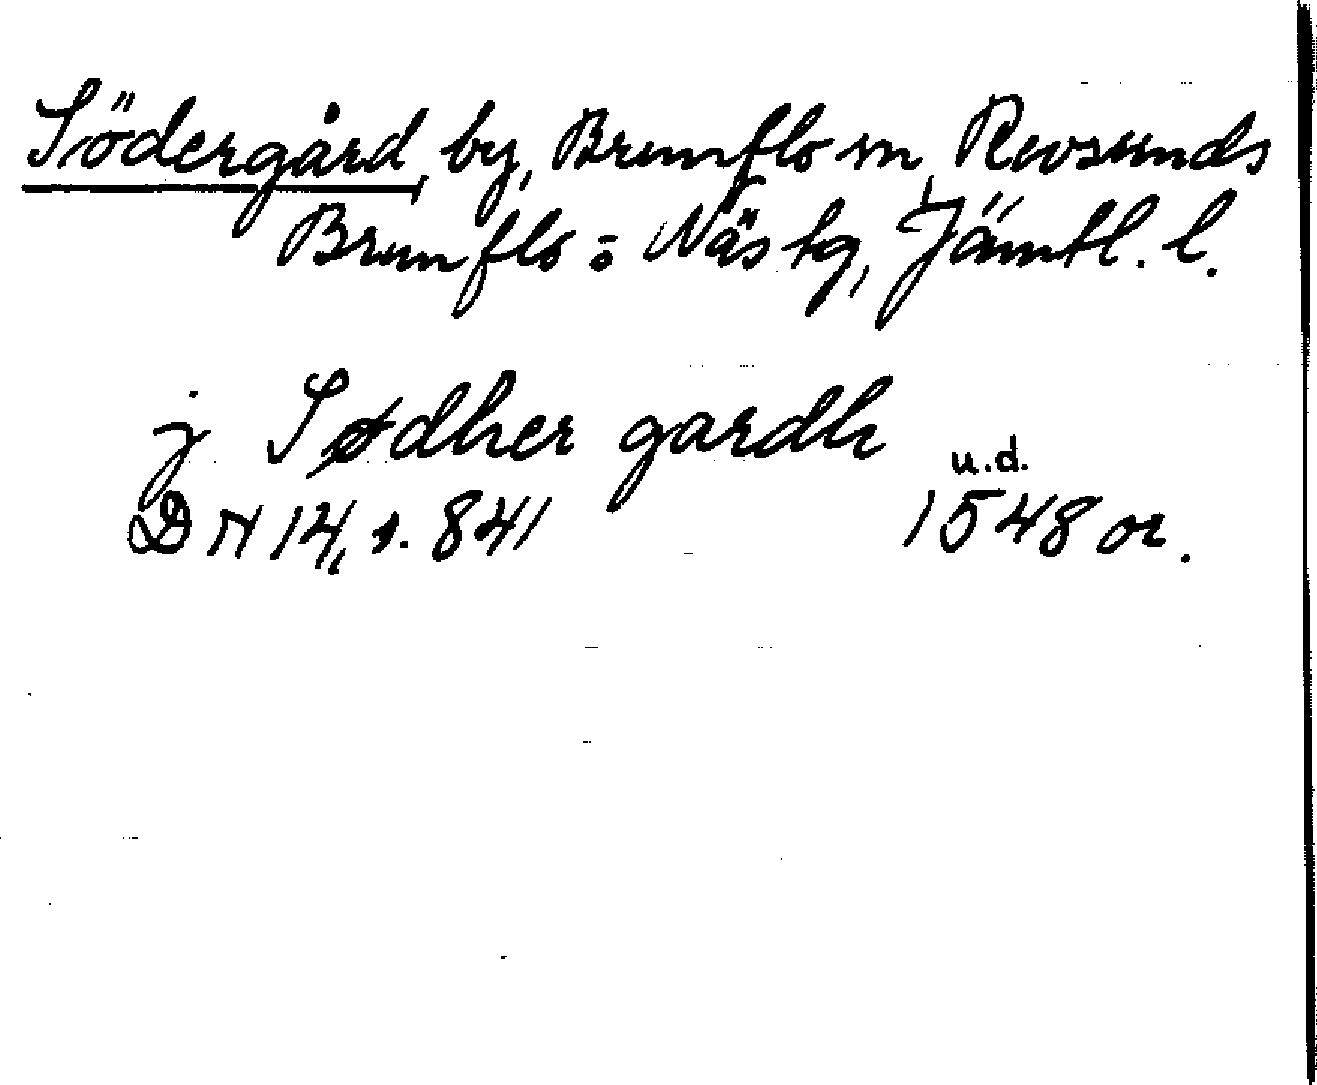 Södergård, by, Brunflo sn, Revsunds
Brunflo o Näs tg, Jämtl. l.
j Sødher gardh u.d.
DN 14, s. 841 1548 or.